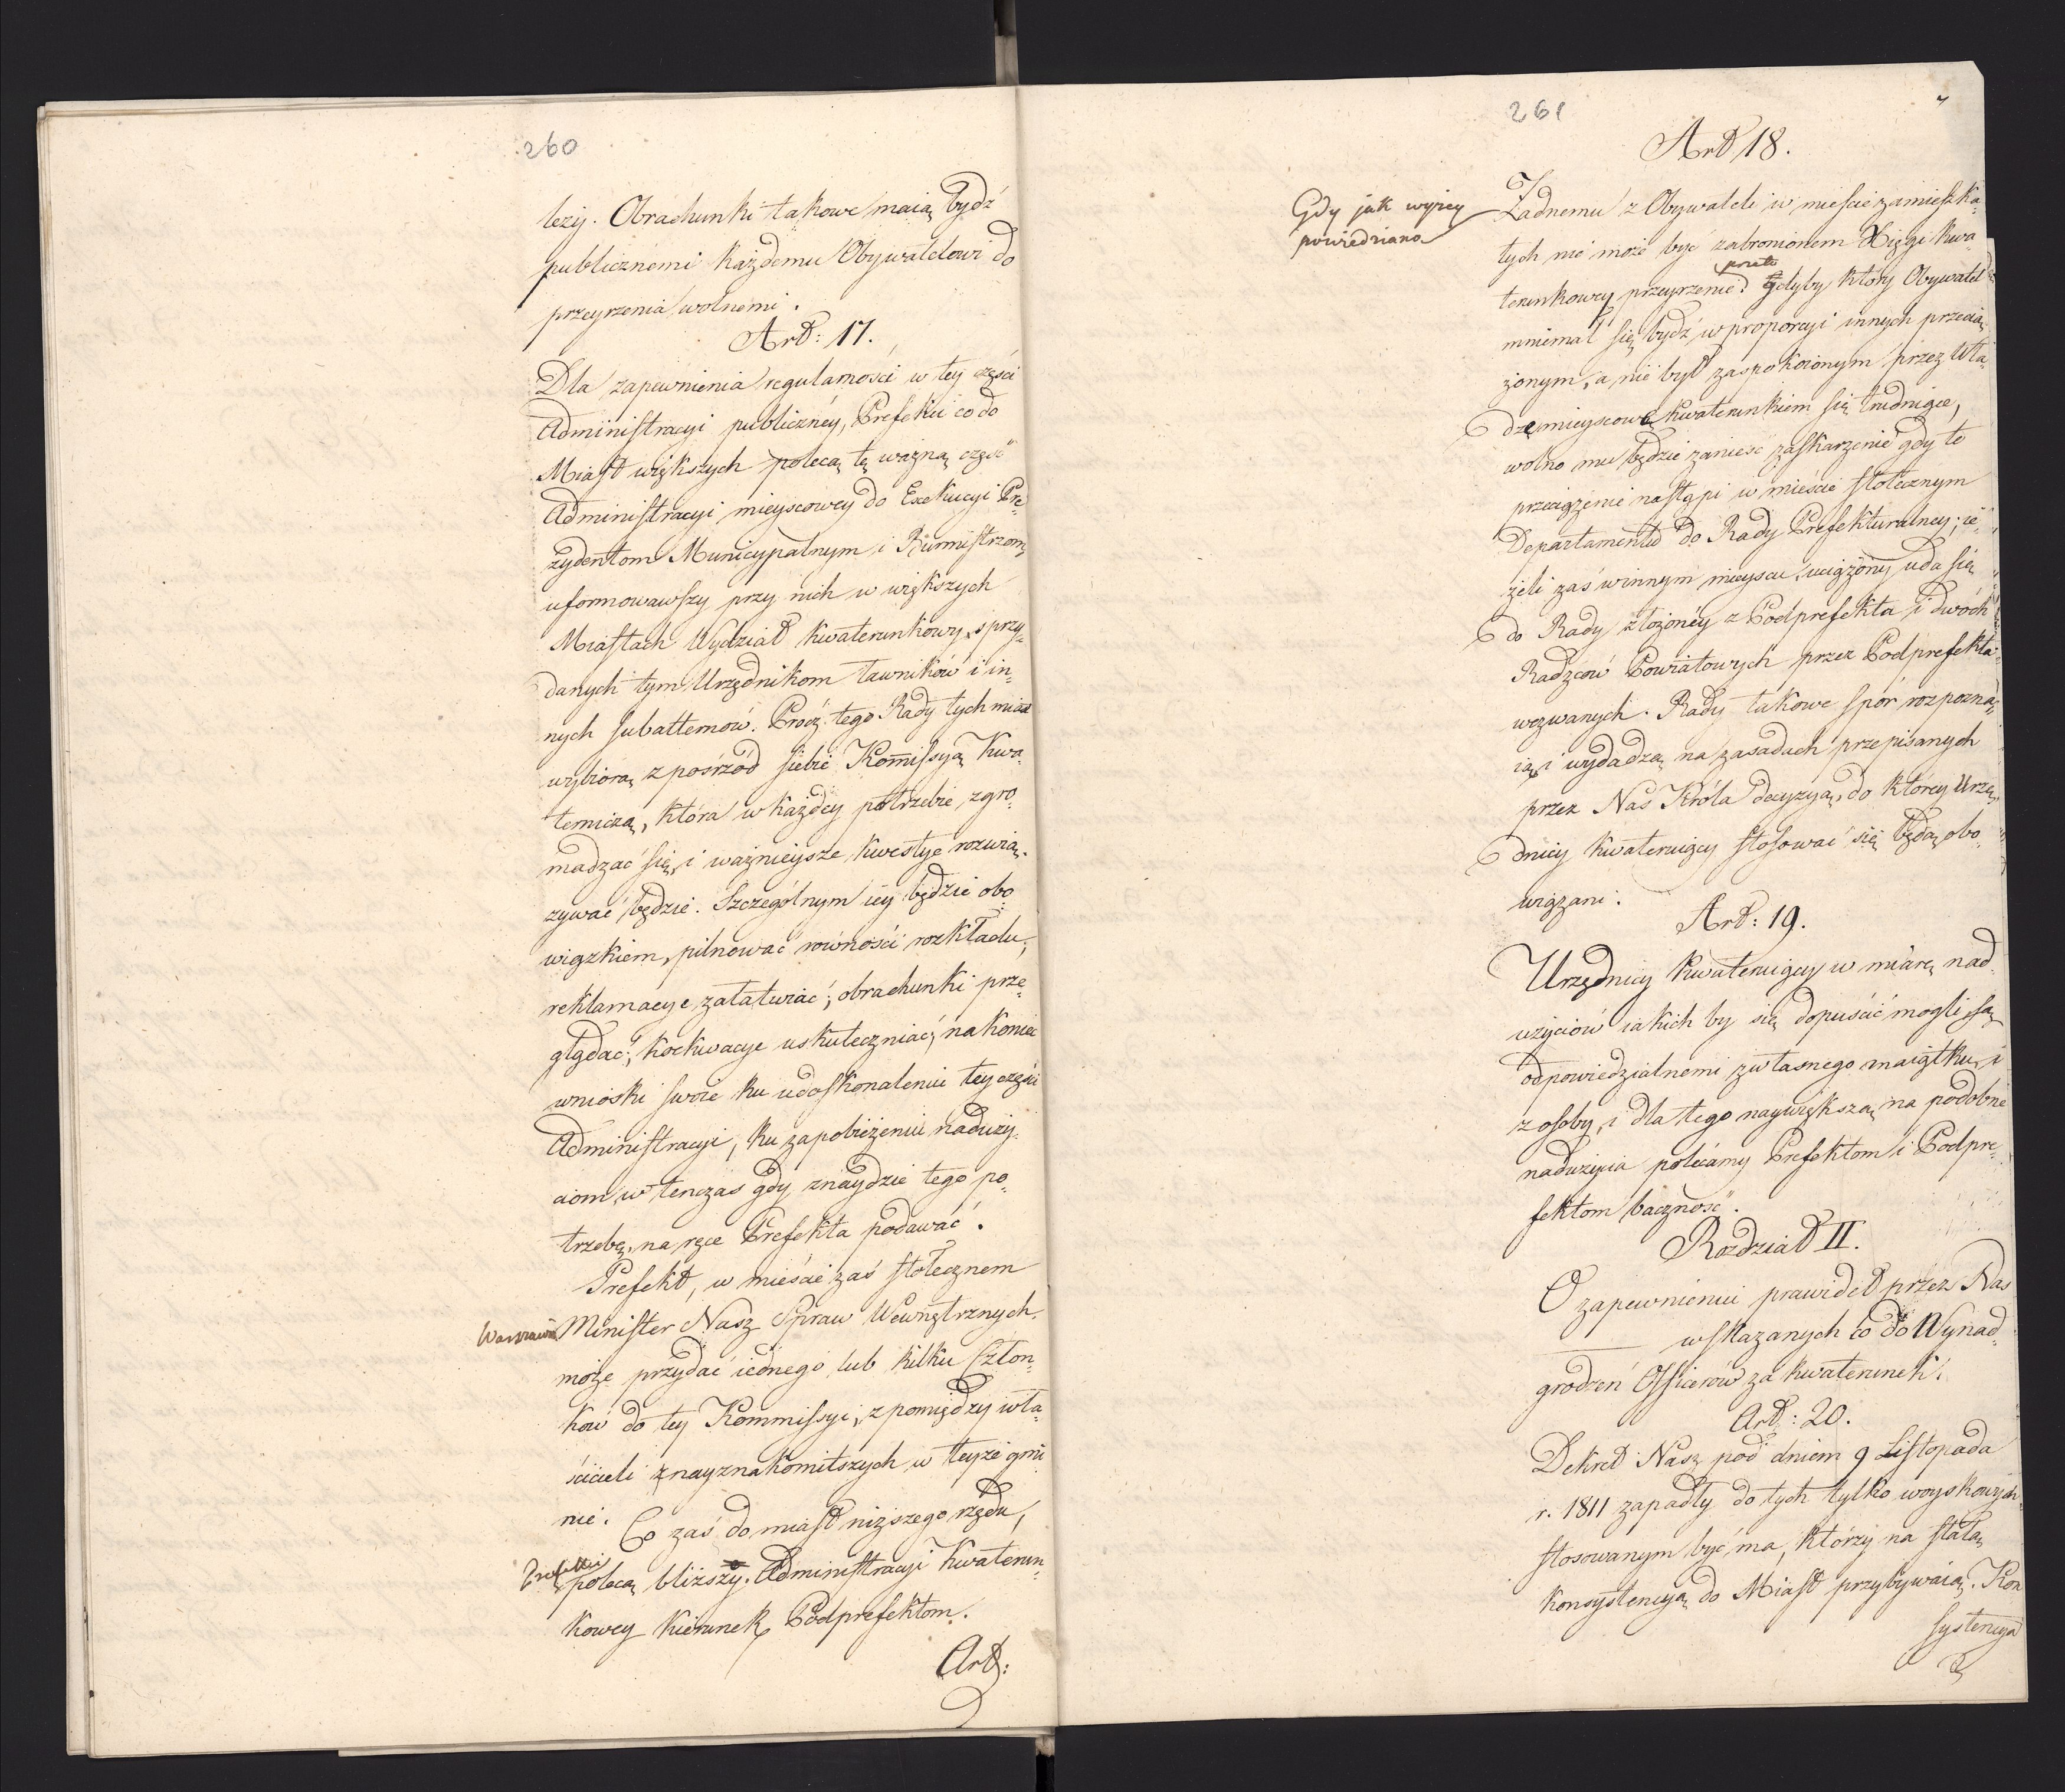 260
leży. Obrachunki takowe maią bydź
publicznemi każdemu Obywatelowi do
przeyrzenia wolnemi.
Art: 17.
Dla zapewnienia regularności w tey części
Administracyi publiczney, Prefekci co do
Miast większych polecą tę ważną część
Administracyi mieyscowey do Exekucyi Pre¬
zydentom Municypalnym i Burmistrzom,
uformowawszy przy nich w większych
Miastach Wydział kwaterunkowy, s przy¬
danych tym Urzędnikom ławników i in¬
nych subalternów. Prócz tego Rady tych miast
wybiorą z pośrzód siebie Kommissyą Kwa¬
terniczą, która w każdey potrzebie zgro¬
madzać się, i ważnieysze kwestye rozwią¬
zywać będzie. Szczególnym iey będzie obo¬
wiązkiem, pilnować równości rozkładu;
reklamacye załatwiać; obrachunki prze¬
glądać; koekwacye uskuteczniać; nakoniec
wnioski swoie ku udoskonaleniu tey części
Administracyi, ku zapobieżeniu naduży¬
ciom w tenczas gdy znaydzie tego po¬
trzebę, na ręce Prefekta podawać.
Prefekt, w mieście zaś stołecznem
Warszawie Minister Nasz Spraw Wewnętrznych
może przydać iednego lub kilku Człon¬
ków do tey Kommissyi, z pomiędzy wła¬
ścicieli znayznakomitszych w teyże gmi¬
nie. Co zaś do miast niższego rzędu,
Prefekci polecą bliższy Administracyi Kwaterun¬
kowey kierunek Podprefektom.
Art:
261
Art 18.
Gdy jak wyżey
powiedziano
Żadnemu z Obywateli w mieście zamieszka¬
łych nie może być zabronionem Xięgi kwa¬
terunkowey przeyrzenie. przeto gdyby który Obywatel
mniemał się bydź w proporcyi innych przecią¬
żonym, a nie był zaspokoionym przez Wła¬
dzę mieyscową kwaterunkiem się trudniące,
wolno mu będzie zanieść zaskarzenie gdy to
przeciążenie nastąpi w mieście stołecznym
Departamentu do Rady Prefekturalney; ie¬
żeli zaś w innym mieyscu, uciążony uda się
do Rady złożoney z Podprefekta i dwóch
Radzców Powiatowych przez Podprefekta
wezwanych. Rady takowe spór rozpozna¬
ią, i wydadzą na zasadach przepisanych
przez Nas Króla decyzyą, do którey Urzę¬
dnicy kwateruiący stosować się będą obo¬
wiązani.
Art: 19.
Urzędnicy kwateruiący w miarę nad¬
użyciów iakich by się dopuścić mogli, są
odpowiedzialnemi z własnego maiątku, i
z osoby, i dla tego naywiększą na podobne
nadużycia polecamy Prefektom i Podpre¬
fektom baczność.
Rozdział II.
O zapewnieniu prawideł przez Nas
wskazanych co do Wynad¬
grodzeń Officerów za kwaterunek.
Art: 20.
Dekret Nasz pod dniem 9 Listopada
r. 1811 zapadły do tych tylko woyskowych
stosowanym być ma, którzy na stałą
konsystencyą do Miast przybywaią. Kon
systencya